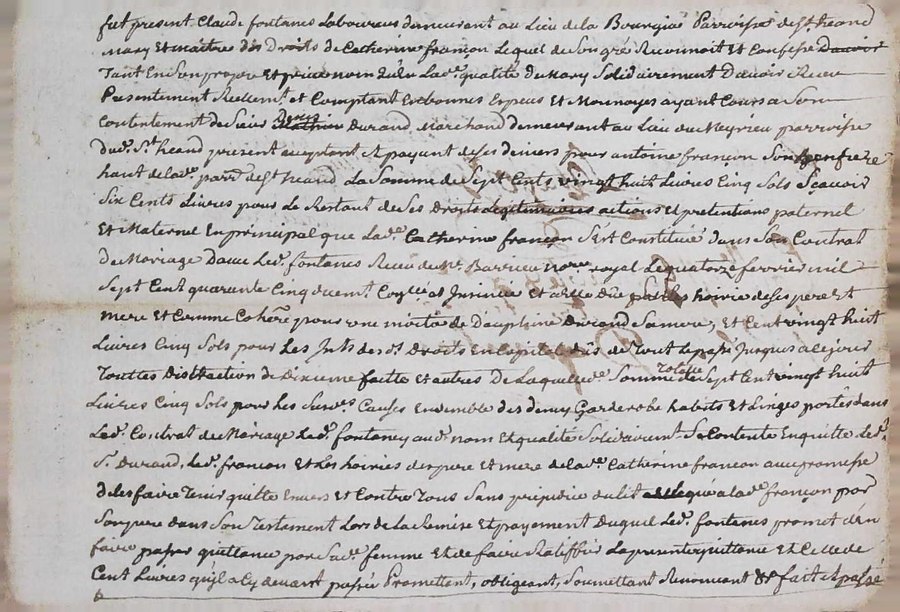 fut present Claude fontanes Laboureur demeurant au Lieu de la Bourgias Parroisse de St. heand
mary Et maitre des Droits de Catherine françon Lequel de Son gré Reconnoit Et Confesse Davoir
Tant En Son propre Et privé nom qu'En Lad.e qualité de Mary Solidairement Davoir Receu
Presentement Reellemt. et Comptant En bonnes Espeus Et Monnoyes ayant Cours a Son
Contentement de Sieur Denis Mathieu Durand Marchand demeurant au Lieu du Meyrieu parroisse
dud. St. heand present acceptant Et payant de Ses deniers pour antoine françon Son
haut de lad.e parr. de St. heand La Somme de Sept Cents vingt huit Livres Cinq Sols Scavoir
Six Cents Livres pour Le Restant de Ses Droits Legitimaires actions Et pretentions paternel
Et Maternel En principal que Lad.e Catherine françon S'Est Constitué dans Son Contrat
de Mariage Davec Led. fontanes Receu de Me. Barrieu Nore. royal Le quatorze fevrier mil
Sept Cent quarante Cinq duemt. Et Insinué Et a Elle Dûe par Les hoirs de Ses pere Et
mere Et Comme Cohere. pour une moitié de Dauphine Durand Sa mere, Et Cent vingt huit
Livres Cinq Sols pour Les Ints. des d. Droits En Capital dûs de Tout Le passé Jusques a Ce jour
Touttes Distraction de Dixieme faitte Et autres De Laquelle d.e Somme Totalle de Sept Cent vingt huit
Livres Cinq Sols pour Les Susd.es Causes Ensemble des deniers Garderobe habits Et Linges portés dans
Led. Contrat de Mariage Led. fontaney aud. nom Et qualités Solidairemt. Se Contente En quitte Led.
Sr. Durand, Led. françon Et Les hoiries des pere Et mere de lad.e Catherine françon avec promesse
de Les faire Tenir quitte Envers Et Contre Tous Sans prejudice du lit Legué a lad.e françon par
Son pere dans Son Testament Lors de La Remise Et payement Duquel Led. fontanes promet d'En
faire passer quittance par Sad.e femme Et de faire Ratiffier La presente quittance Et Celle de
Cent Livres qu'il a Cy devant passée Promettant, obligeant, Soumettant Renonceant & fait Et passé